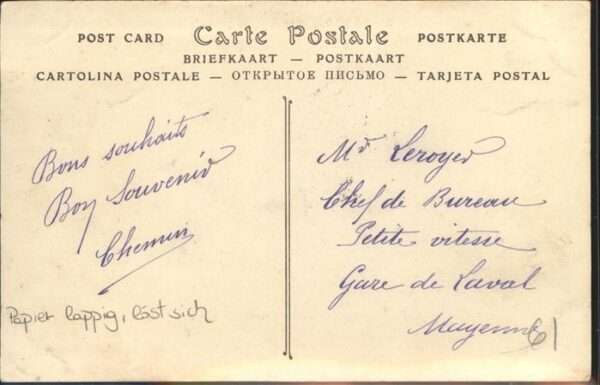 POST CARD Carte Postale POSTKARTE
BRIEFKAART — POSTKAART
CARTOLINA POSTALE — ОТКРЫТОЕ ПИСЬМО — TARJETA POSTAL
Bons souhaits
Bon Souvenir
Chemin
Papier lappig, löst sich
Mr Leroyer
Chef de Bureau
Petite vitesse
Gare de Laval
Mayenne